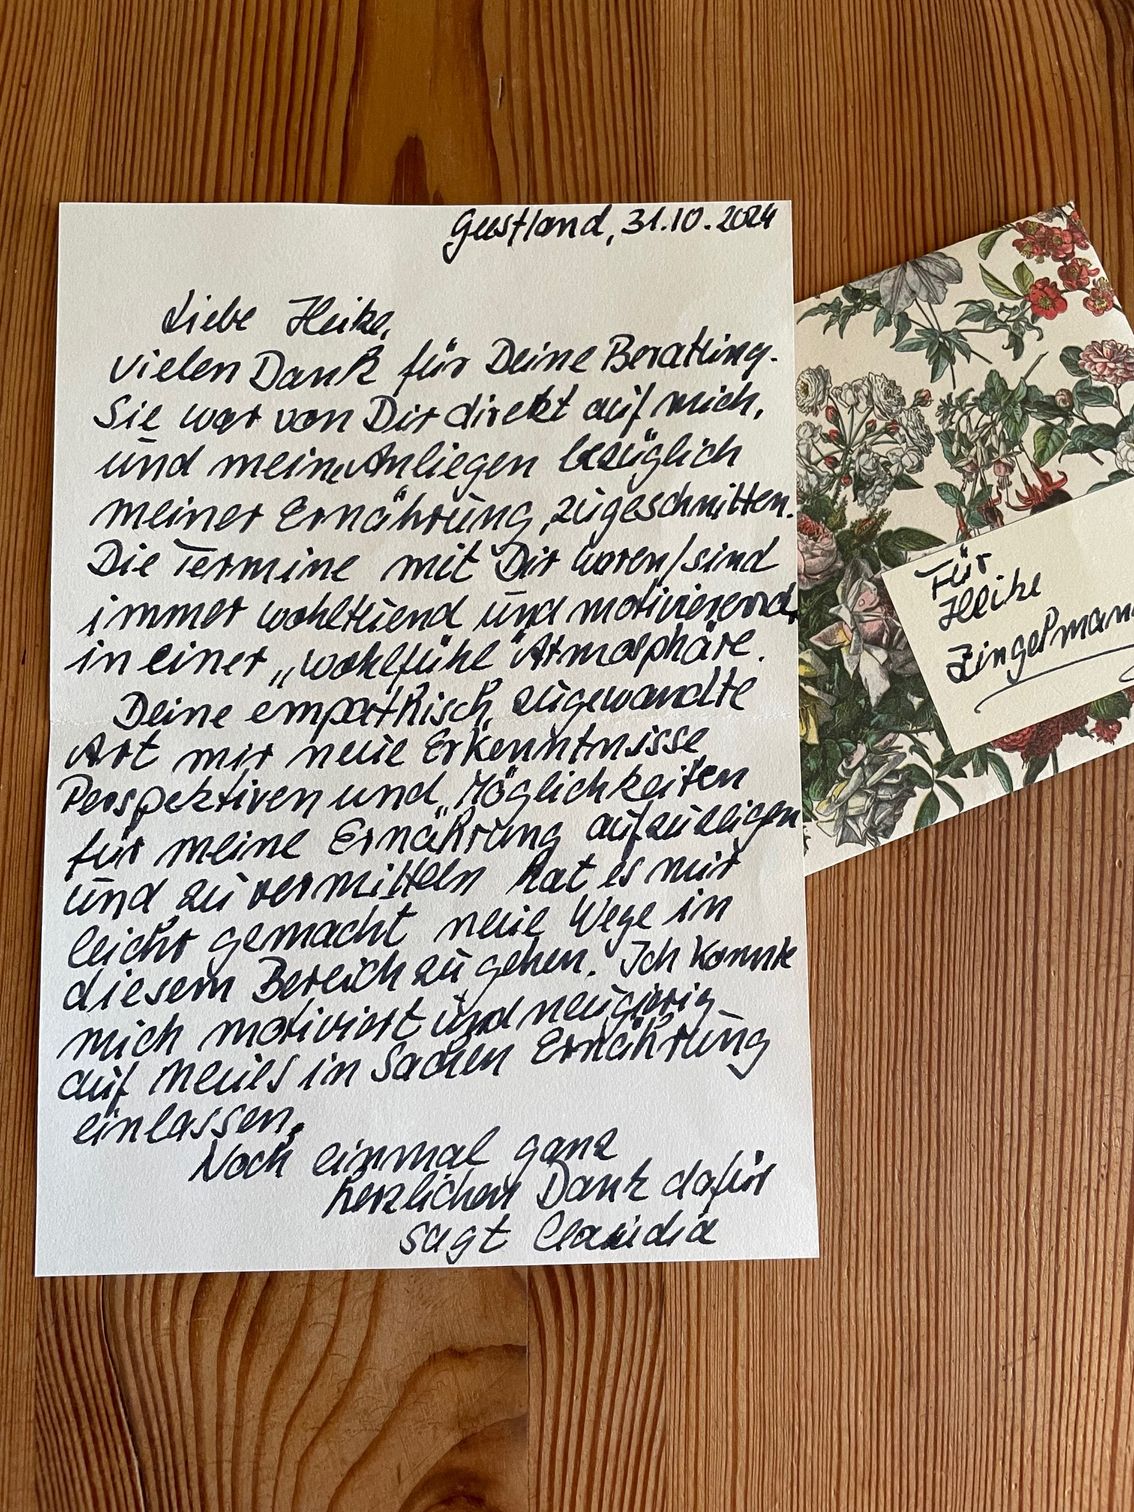 Geestland, 31.10.2024
Liebe Heike,
vielen Dank für Deine Beratung.
Sie war von Dir direkt auf mich,
und mein Anliegen bezüglich
meiner Ernährung, zugeschnitten.
Die Termine mit Dir waren/sind
immer wohltuend und motivierend,
in einer „wohlfühl" Atmosphäre.
Deine empathisch, zugewandte
Art mir neue Erkenntnisse
Perspektiven und Möglichkeiten
für meine Ernährung aufzuzeigen
und zu vermitteln hat es mir
leicht gemacht neue Wege in
diesem Bereich zu gehen. Ich konnte
mich motiviert und neugierig
auf neues in Sachen Ernährung
einlassen.
Noch einmal ganz
herzlichen Dank dafür
sagt Claudia
Für
Heike
Zingelmann